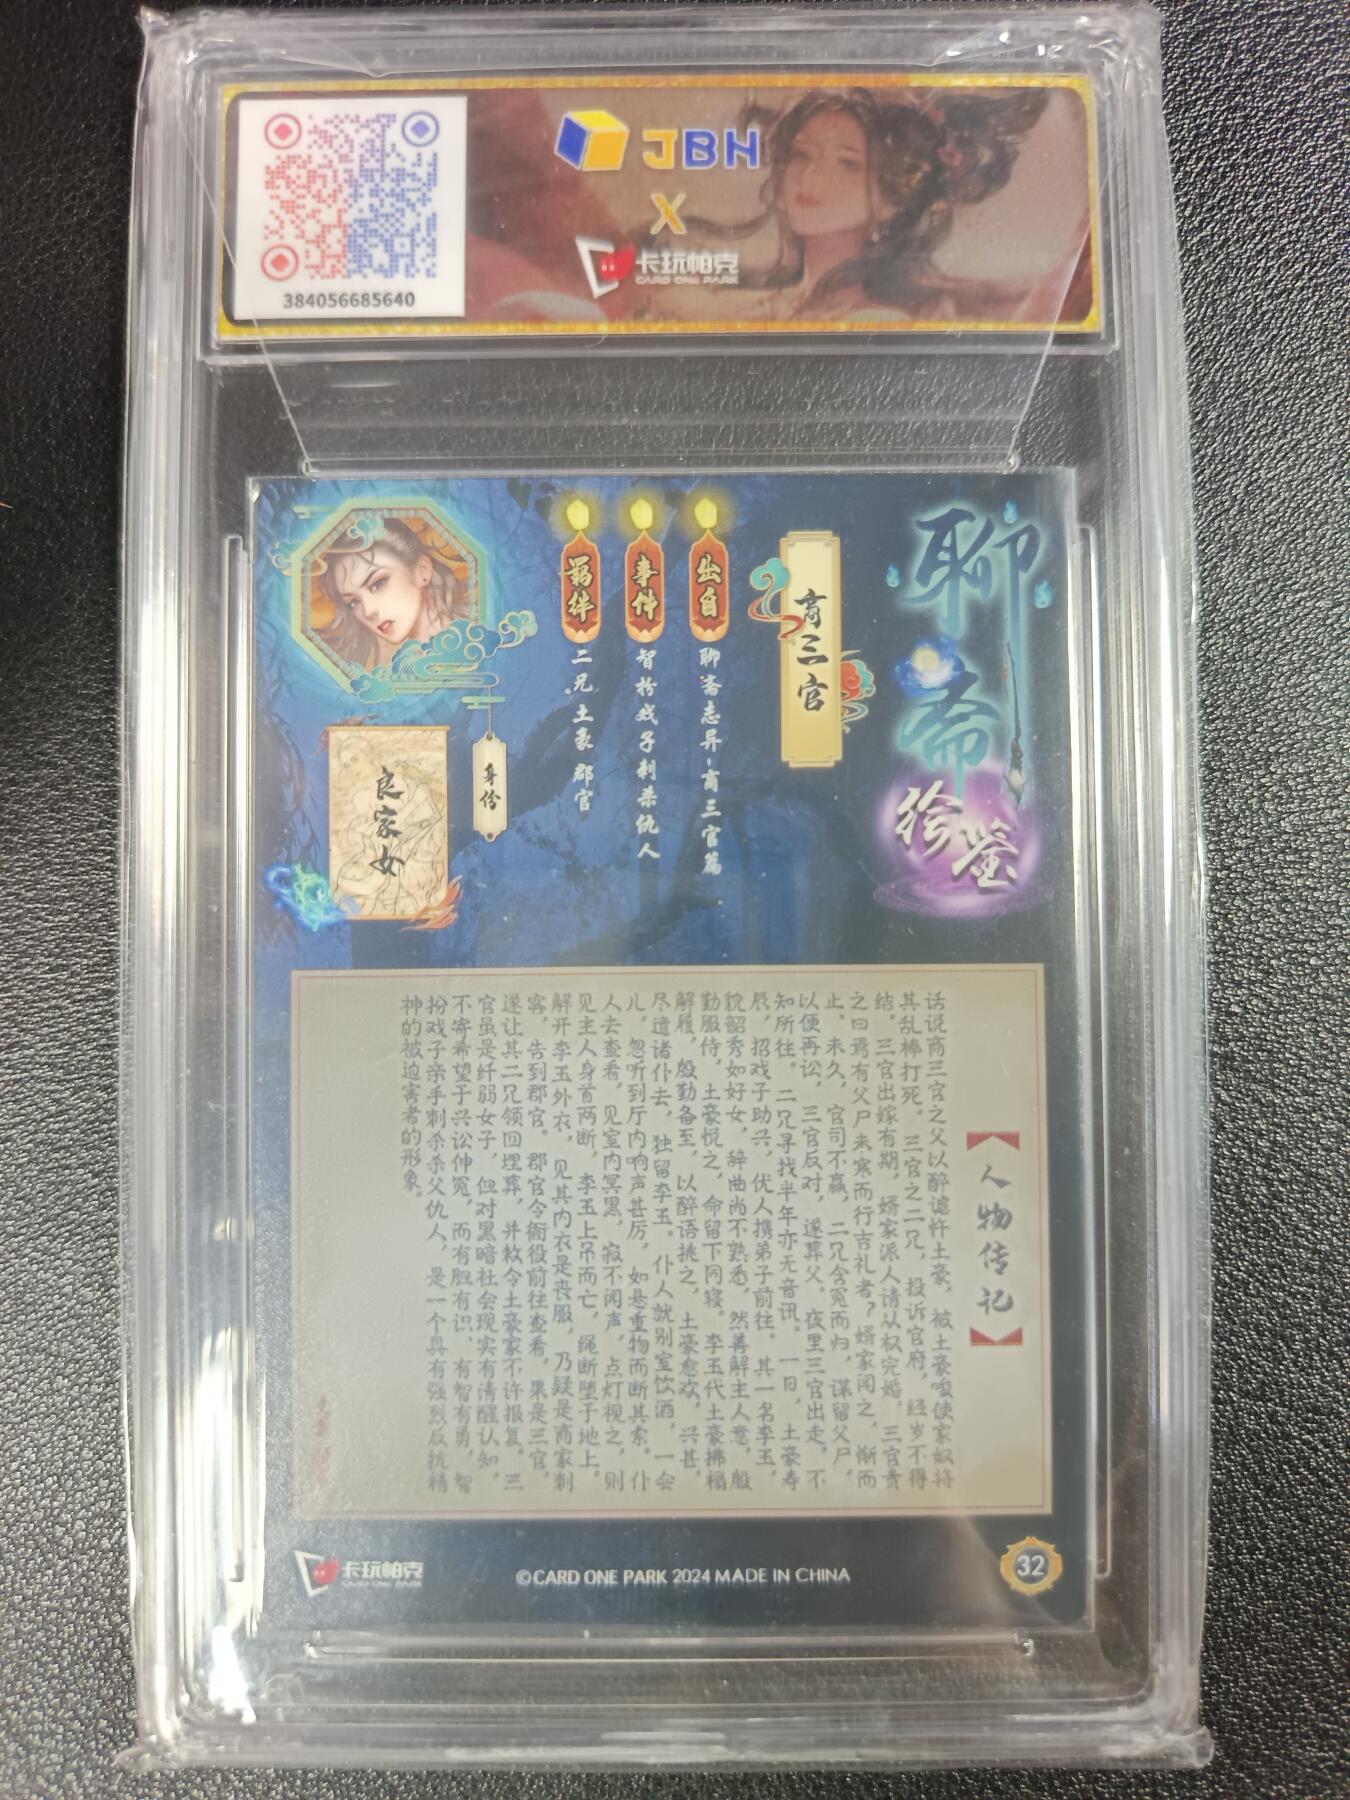 384056685640
JBH
X
卡玩帕克
CARD ONE PARK
聊斋
绘鉴
商三官
出自
聊斋志异-商三官篇
事件
智扮戏子刺杀仇人
羁绊
二兄 土豪 郡官
身份
良家女
人物传记
话说商三官之父以醉谑忤土豪，被土豪唆使家奴将
其乱棒打死。三官之二兄，投诉官府，经岁不得
结。三官出嫁有期，婿家派人请从权完婚，三官责
之曰焉有父尸未寒而行吉礼者？婿家闻之，惭而
止。未久，官司不赢，二兄含冤而归，谋留父尸，
以便再讼，三官反对，遂葬父。夜里三官出走，不
知所往。二兄寻找半年亦无音讯。一日，土豪寿
辰，招戏子助兴，优人携弟子前往。其一名李玉，
貌韶秀如好女，辞曲尚不熟悉，然善解主人意，殷
勤服侍，土豪悦之，命留下同寝。李玉代土豪拂榻
解履，殷勤备至，以醉语挑之，土豪愈欢，兴甚，
尽遣诸仆去，独留李玉。仆人就别室饮酒，一会
儿，忽听到厅内响声甚厉，如悬重物而断其索。仆
人去查看，见室内冥黑，寂不闻声，点灯视之，则
见主人身首两断，李玉上吊而亡，绳断堕于地上。
解开李玉外衣，见其内衣是丧服，乃疑是商家刺
客，告到郡官。郡官令衙役前往查看，果是三官，
遂让其二兄领回埋葬，并敕令土豪家不许报复。三
官虽是纤弱女子，但对黑暗社会现实有清醒认知，
不寄希望于兴讼伸冤，而有胆有识、有智有勇，智
扮戏子亲手刺杀杀父仇人，是一个具有强烈反抗精
神的被迫害者的形象。
卡玩帕克
CARD ONE PARK
©CARD ONE PARK 2024 MADE IN CHINA
32